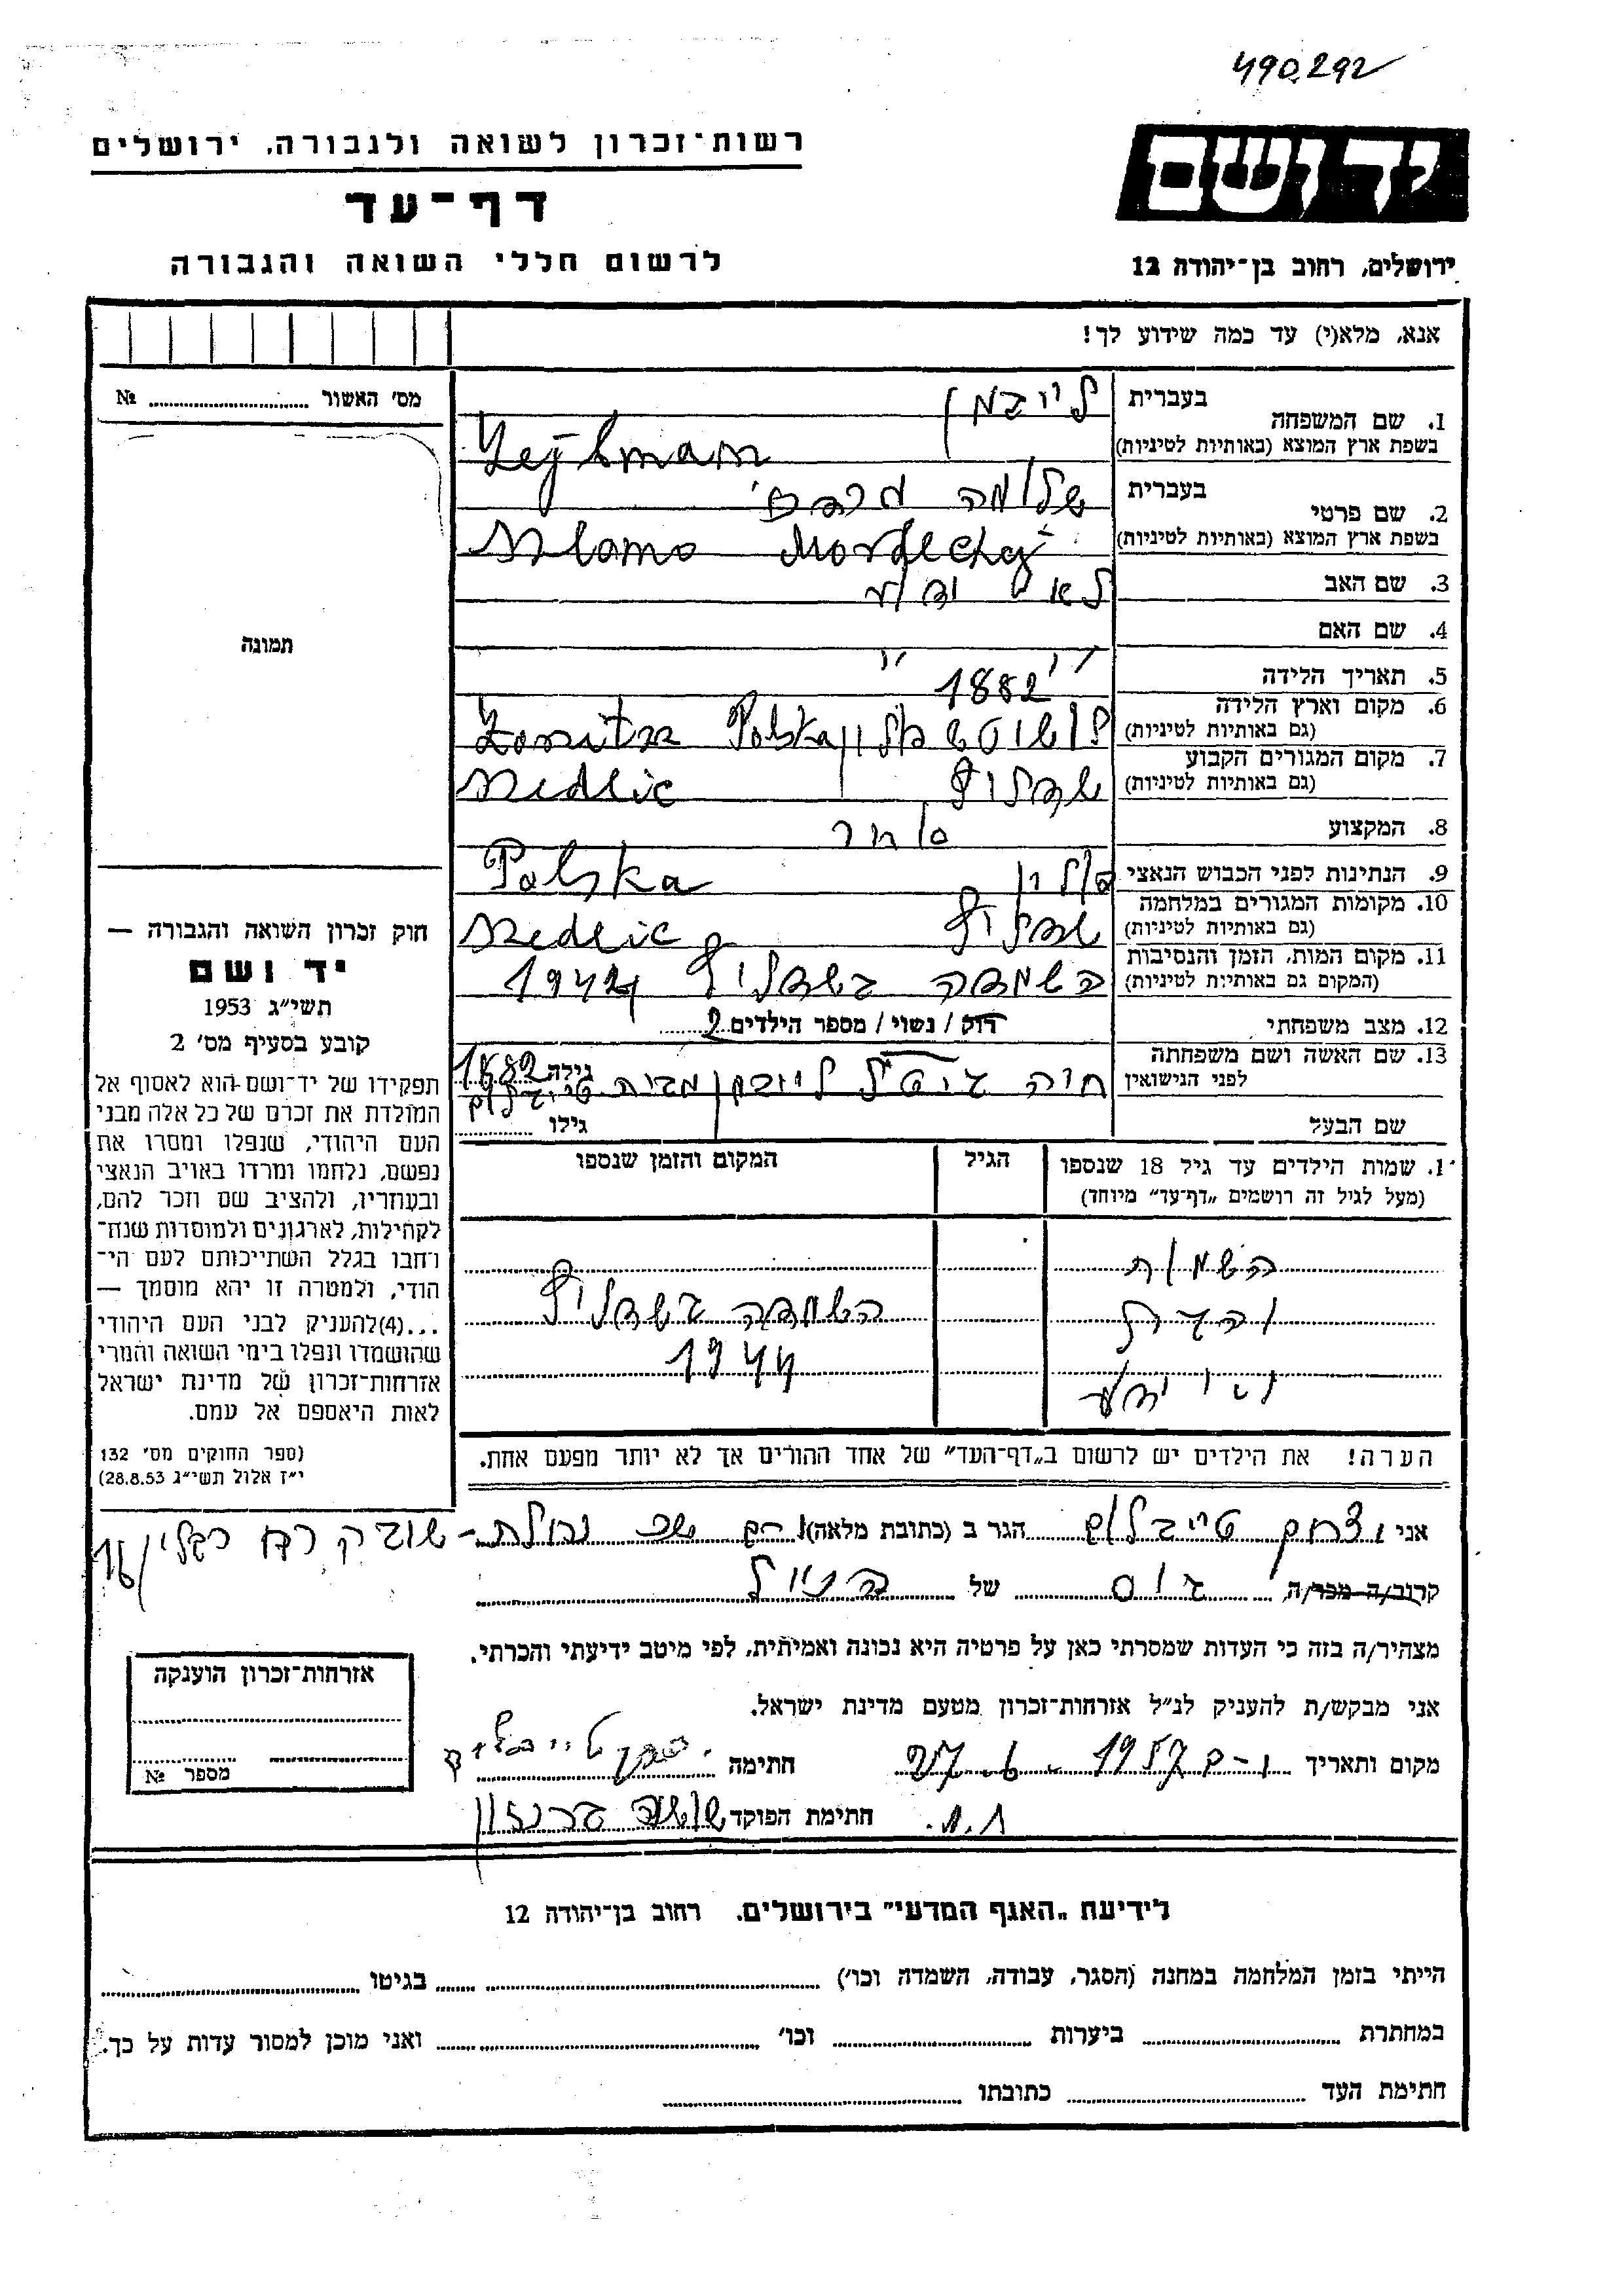 490292
רשות־זכרון לשואה ולגבורה, ירושלים
יד ושם
דף־עד
לרשום חללי השואה והגבורה
ירושלים, רחוב בן־יהודה 12
אנא, מלא(י) עד כמה שידוע לך!
מס׳ האשור № 
1. שם המשפחה
בעברית ליובמן
בשפת ארץ המוצא (באותיות לטיניות) Lejbman
2. שם פרטי
בעברית שלומה מרדכי
בשפת ארץ המוצא (באותיות לטיניות) Szlomo Mordechaj
3. שם האב לא ידוע
4. שם האם " "
5. תאריך הלידה 1882
6. מקום וארץ הלידה
(גם באותיות לטיניות) פולין Polska
7. מקום המגורים הקבוע
(גם באותיות לטיניות) שדליץ Szedlic
8. המקצוע סוחר
9. הנתינות לפני הכבוש הנאצי פולין Polska
10. מקומות המגורים במלחמה
(גם באותיות לטיניות) שדליץ Szedlic
11. מקום המות, הזמן והנסיבות
(המקום גם באותיות לטיניות) השמדה בשדליץ
12. מצב משפחתי רוק / נשוי / מספר הילדים 2
13. שם האשה ושם משפחתה
לפני הנישואין חוה ליובמן מבית טייבלום גילה 1882
שם הבעל גילו
1. שמות הילדים עד גיל 18 שנספו
(מעל לגיל זה רושמים „דף־עד״ מיוחד)
הגיל
המקום והזמן שנספו
השמות
והגיל
לא ידוע
השמדה בשדליץ
1944
הערה! את הילדים יש לרשום ב„דף־העד״ של אחד ההורים אך לא יותר מפעם אחת.
תמונה
חוק זכרון השואה והגבורה —
יד ושם
תשי״ג 1953
קובע בסעיף מס׳ 2
תפקידו של יד־ושם הוא לאסוף אל
המולדת את זכרם של כל אלה מבני
העם היהודי, שנפלו ומסרו את
נפשם, נלחמו ומרדו באויב הנאצי
ובעוזריו, ולהציב שם וזכר להם,
לקהילות, לארגונים ולמוסדות שנח־
רבו בגלל השתייכותם לעם הי־
הודי, ולמטרה זו יהא מוסמך —
...(4) להעניק לבני העם היהודי
שהושמדו ונפלו בימי השואה והמרי
אזרחות־זכרון של מדינת ישראל
לאות היאספם אל עמם.
(ספר החוקים מס׳ 132
י״ז אלול תשי״ג 28.8.53)
אני יצחק טייבלום הגר ב (כתובת מלאה)
קרוב/ה מכר/ה, גיס של הנ״ל
מצהיר/ה בזה כי העדות שמסרתי כאן על פרטיה היא נכונה ואמיתית, לפי מיטב ידיעתי והכרתי.
אני מבקש/ת להעניק לנ״ל אזרחות־זכרון מטעם מדינת ישראל.
מקום ותאריך 1957 חתימה יצחק טייבלום
חתימת הפוקד
אזרחות־זכרון הוענקה
מספר №
לידיעת „האגף המדעי״ בירושלים. רחוב בן־יהודה 12
הייתי בזמן המלחמה במחנה (הסגר, עבודה, השמדה וכו׳) בגיטו
במחתרת ביערות וכו׳ ואני מוכן למסור עדות על כך.
חתימת העד כתובתו